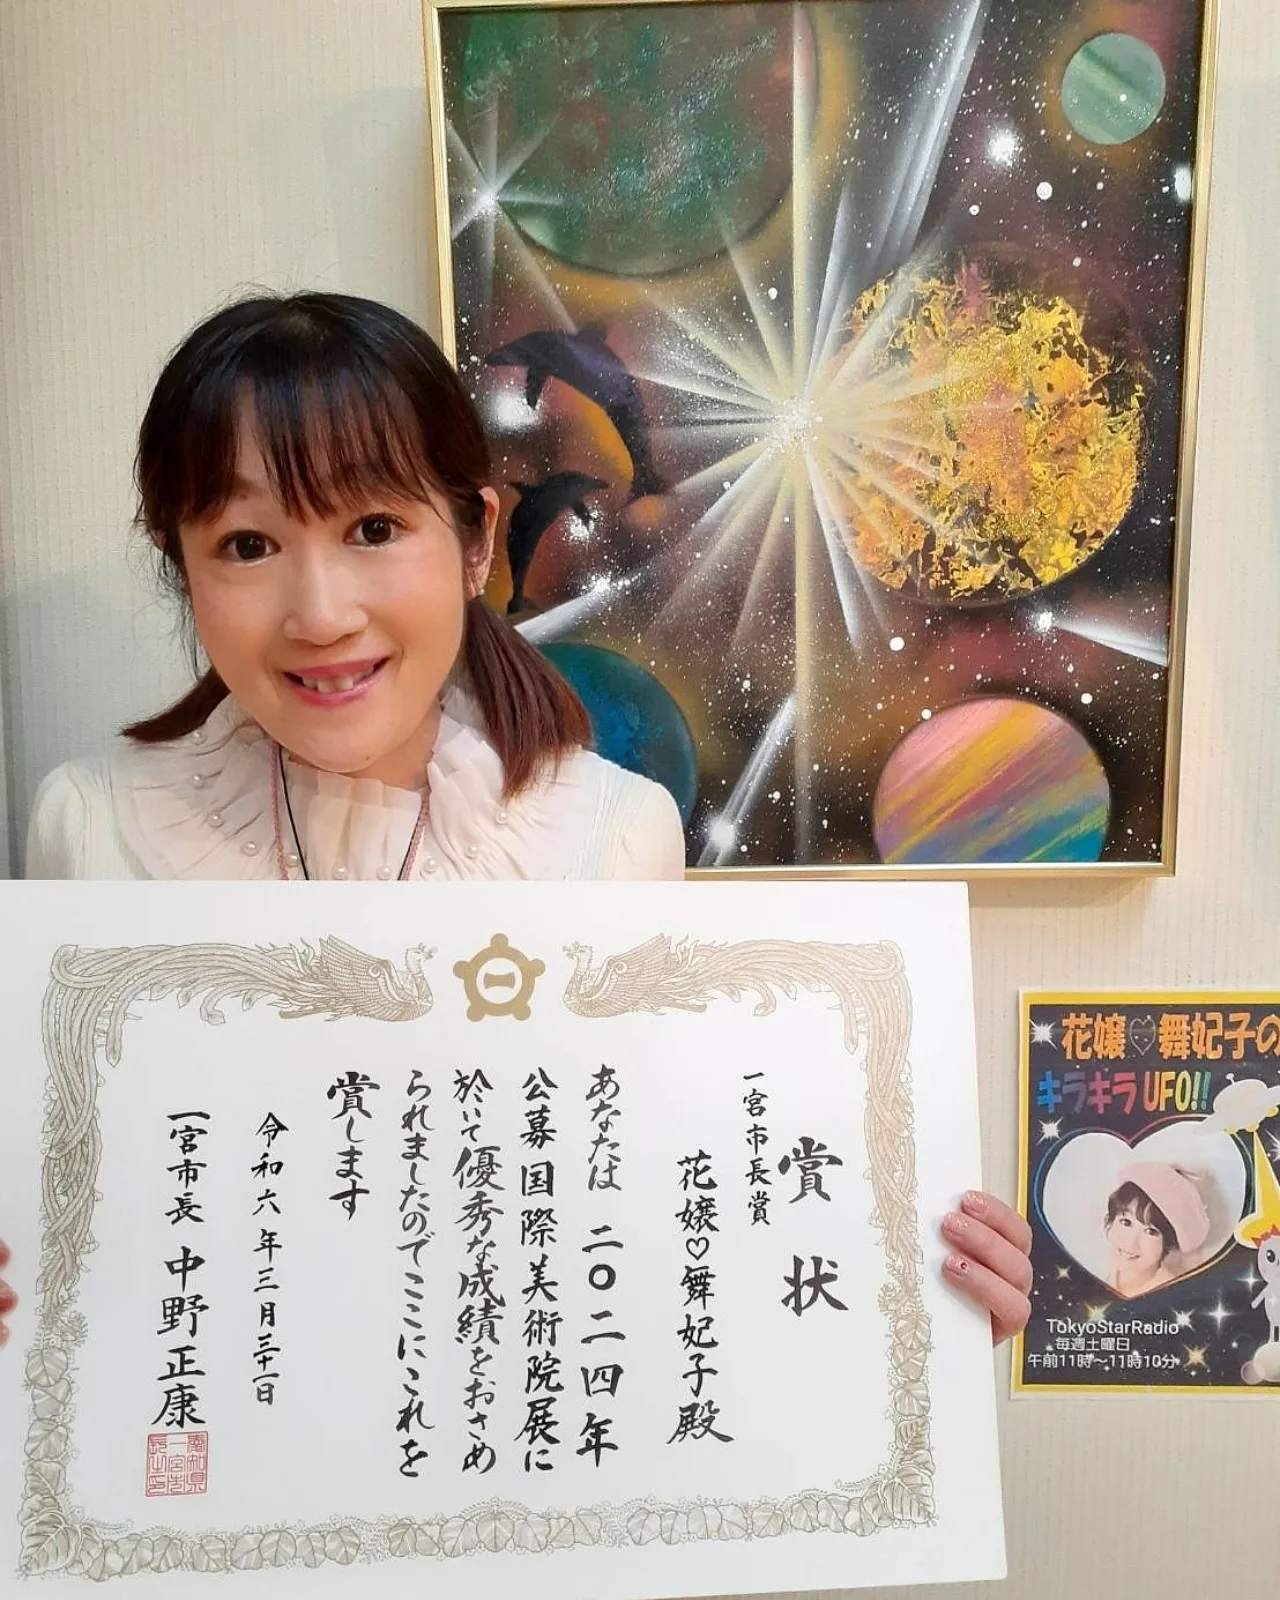 賞状
一宮市長賞
花嬢♡舞妃子殿
あなたは二〇二四年
公募国際美術院展に
於いて優秀な成績をおさめ
られましたのでここにこれを
賞します
令和六年三月三十一日
一宮市長 中野正康
愛知県
一宮市
長之印
花嬢♡舞妃子の
キラキラUFO!!
TokyoStarRadio
毎週土曜日
午前11時〜11時10分